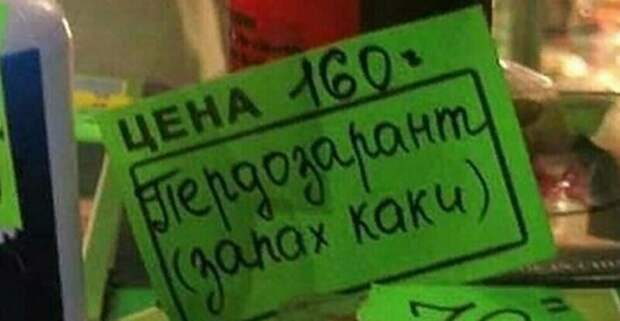 ЦЕНА 160=
Пердозарант
(запах каки)
70=